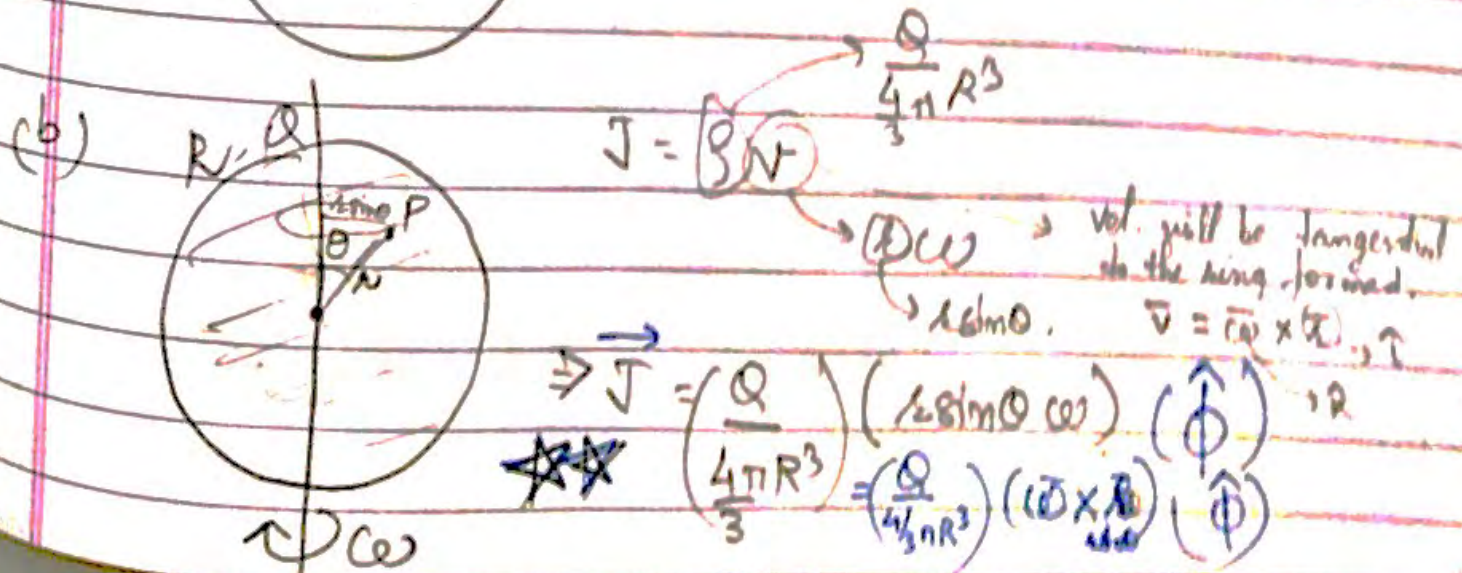 (b)
R, Q
r sinθ P
θ
r
ω
J = ρv
Q
4/3 π R³
(r)ω → vel. will be tangential
to the ring formed.
→ r sinθ.
⇒ J⃗ = (Q / (4/3 πR³)) (r sinθ ω) (φ̂)
= (Q / (4/3 πR³)) (ω̄ × r̄) (φ̂)